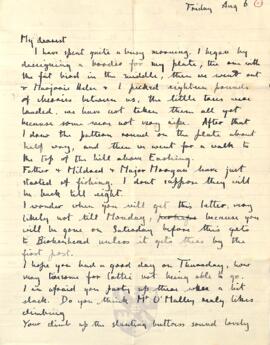 Friday Aug 6
My dearest
I have spent quite a busy morning. I began by
designing a border for my plate, the one with
the fat bird in the middle, then we went out
& Marjorie Helen & I picked eighteen pounds
of cherries between us, the little trees were
loaded, we have not taken them all yet
because some were not very ripe. After that
I drew the pattern round on the plate about
half way, and then we went for a walk to
the top of the hill above Eashing.
Father & Mildred & Major Morgan have just
started off fishing. I dont suppose they will
be back till eight.
I wonder when you will get this letter, very
likely not till Monday, because you
will be gone on Saturday before this gets
to Birkenhead unless it gets there by the
first post.
I hope you had a good day on Thursday, how
very tiresome for not being able to go.
I am afraid you party up there was a bit
slack. Do you think Mr O'Malley really likes
climbing
Your climb up the slanting buttress sound lovely